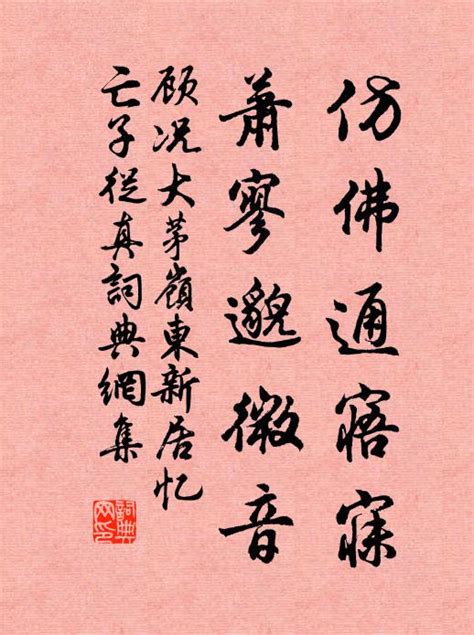 仿佛通寤寐
萧寥邈微音
顾况大茅嶺東新居忆
亡子從真詞典網集
詞典网印